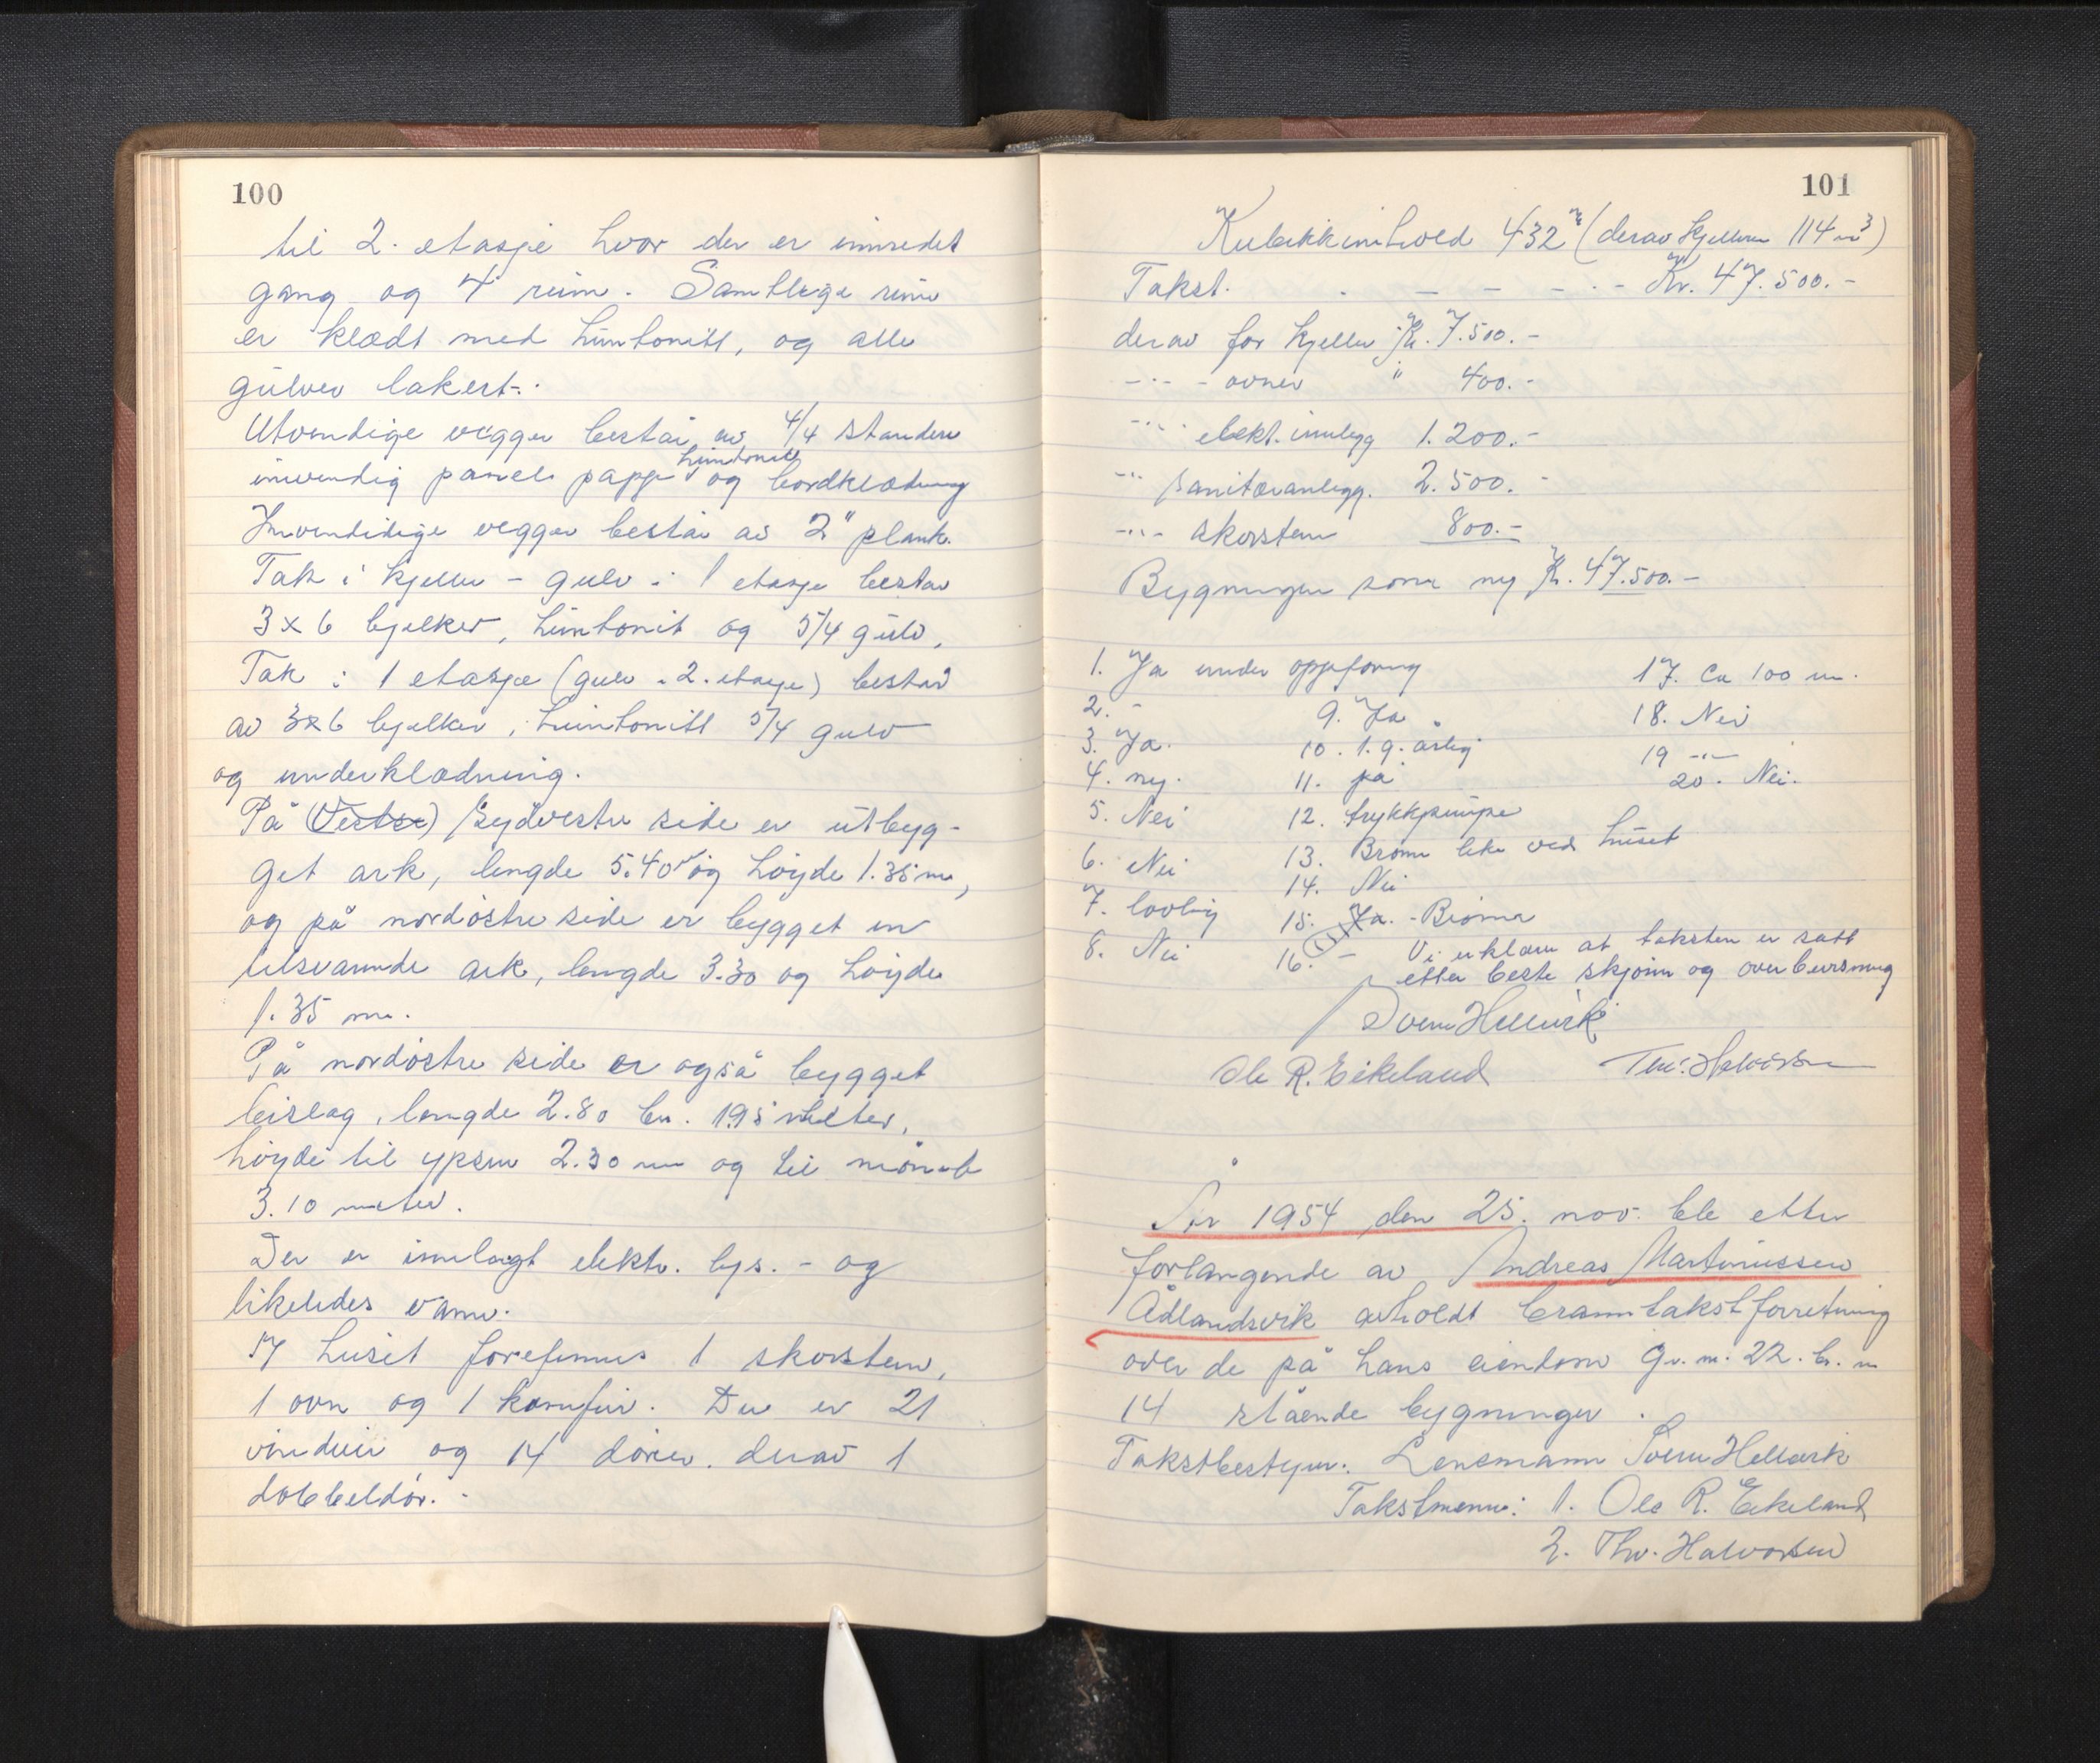 100
til 2. etasje hvor der er innredet
gang og 4 rum. Samtlige rum
er klædt med huntonitt, og alle
gulver lakert.
Utvendige vegger består av 4/4 standere
huntonitt
innvendig panel papp og bordklædning
Innvendidige vegger består av 2" plank.
Tak i kjeller - gulv i 1 etasje består
3x6 bjelker, huntonit og 5/4 gulv.
Tak i 1 etasje (gulv i 2. etasje) består
av 3x6 bjelker, huntonitt 5/4 gulv
og underklædning.
På (Vestre) Sydvestre side er utbyg-
get ark, lengde 5.40 og høyde 1.35 m,
og på nordøstre side er bygget en
tilsvarende ark, lengde 3.30 og høyde
1.35 m.
På nordøstre side er også bygget
bislag, lengde 2.80 br. 1.95 meter,
høyde til gesims 2.30 m og til møne
3.10 meter.
Der er innlagt elektr. lys. - og
likeledes vann.
I huset forefinnes 1 skorsten,
1 ovn og 1 komfur. Der er 21
vinduer og 14 dører. derav 1
dobbeldør.
101
Kubikkinhold 432 (derav kjelleren 114 m3)
Takst. Kr. 47.500.-
derav for kjeller Kr. 7.500.-
-"- - ovner " 400.-
-"- elekt. innlegg 1.200.-
-"- sanitæranlegg. 2.500.-
-"- skorsten 800.-
Bygningen som ny Kr. 47.500.-
1. Ja under oppføring 17. Ca 100 m.
2. - 9. Ja 18. Nei
3. Ja. 10. 1.g. årlig 19 -"-
4. ny. 11. ja 20. Nei.
5. Nei 12. trykkpumpe
6. Nei 13. Brønn like ved huset
7. lovlig 14. Nei
8. Nei 15. Ja. - Brønn
16. - Vi erklærer at taksten er satt
etter beste skjønn og overbevisning
Sverre Hellevik
Ole R. Eikeland Thv. Halvorsen
År 1954 den 25. nov. ble etter
forlangende av Andreas Martinussen
Ådlandsvik avholdt branntakstforretning
over de på hans eiendom gr. nr. 22. br. nr
14 stående bygninger.
Takstbestyrer: Lensmann Sverre Hellevik
Takstmenn: 1. Ole R. Eikeland
2. Thv. Halvorsen